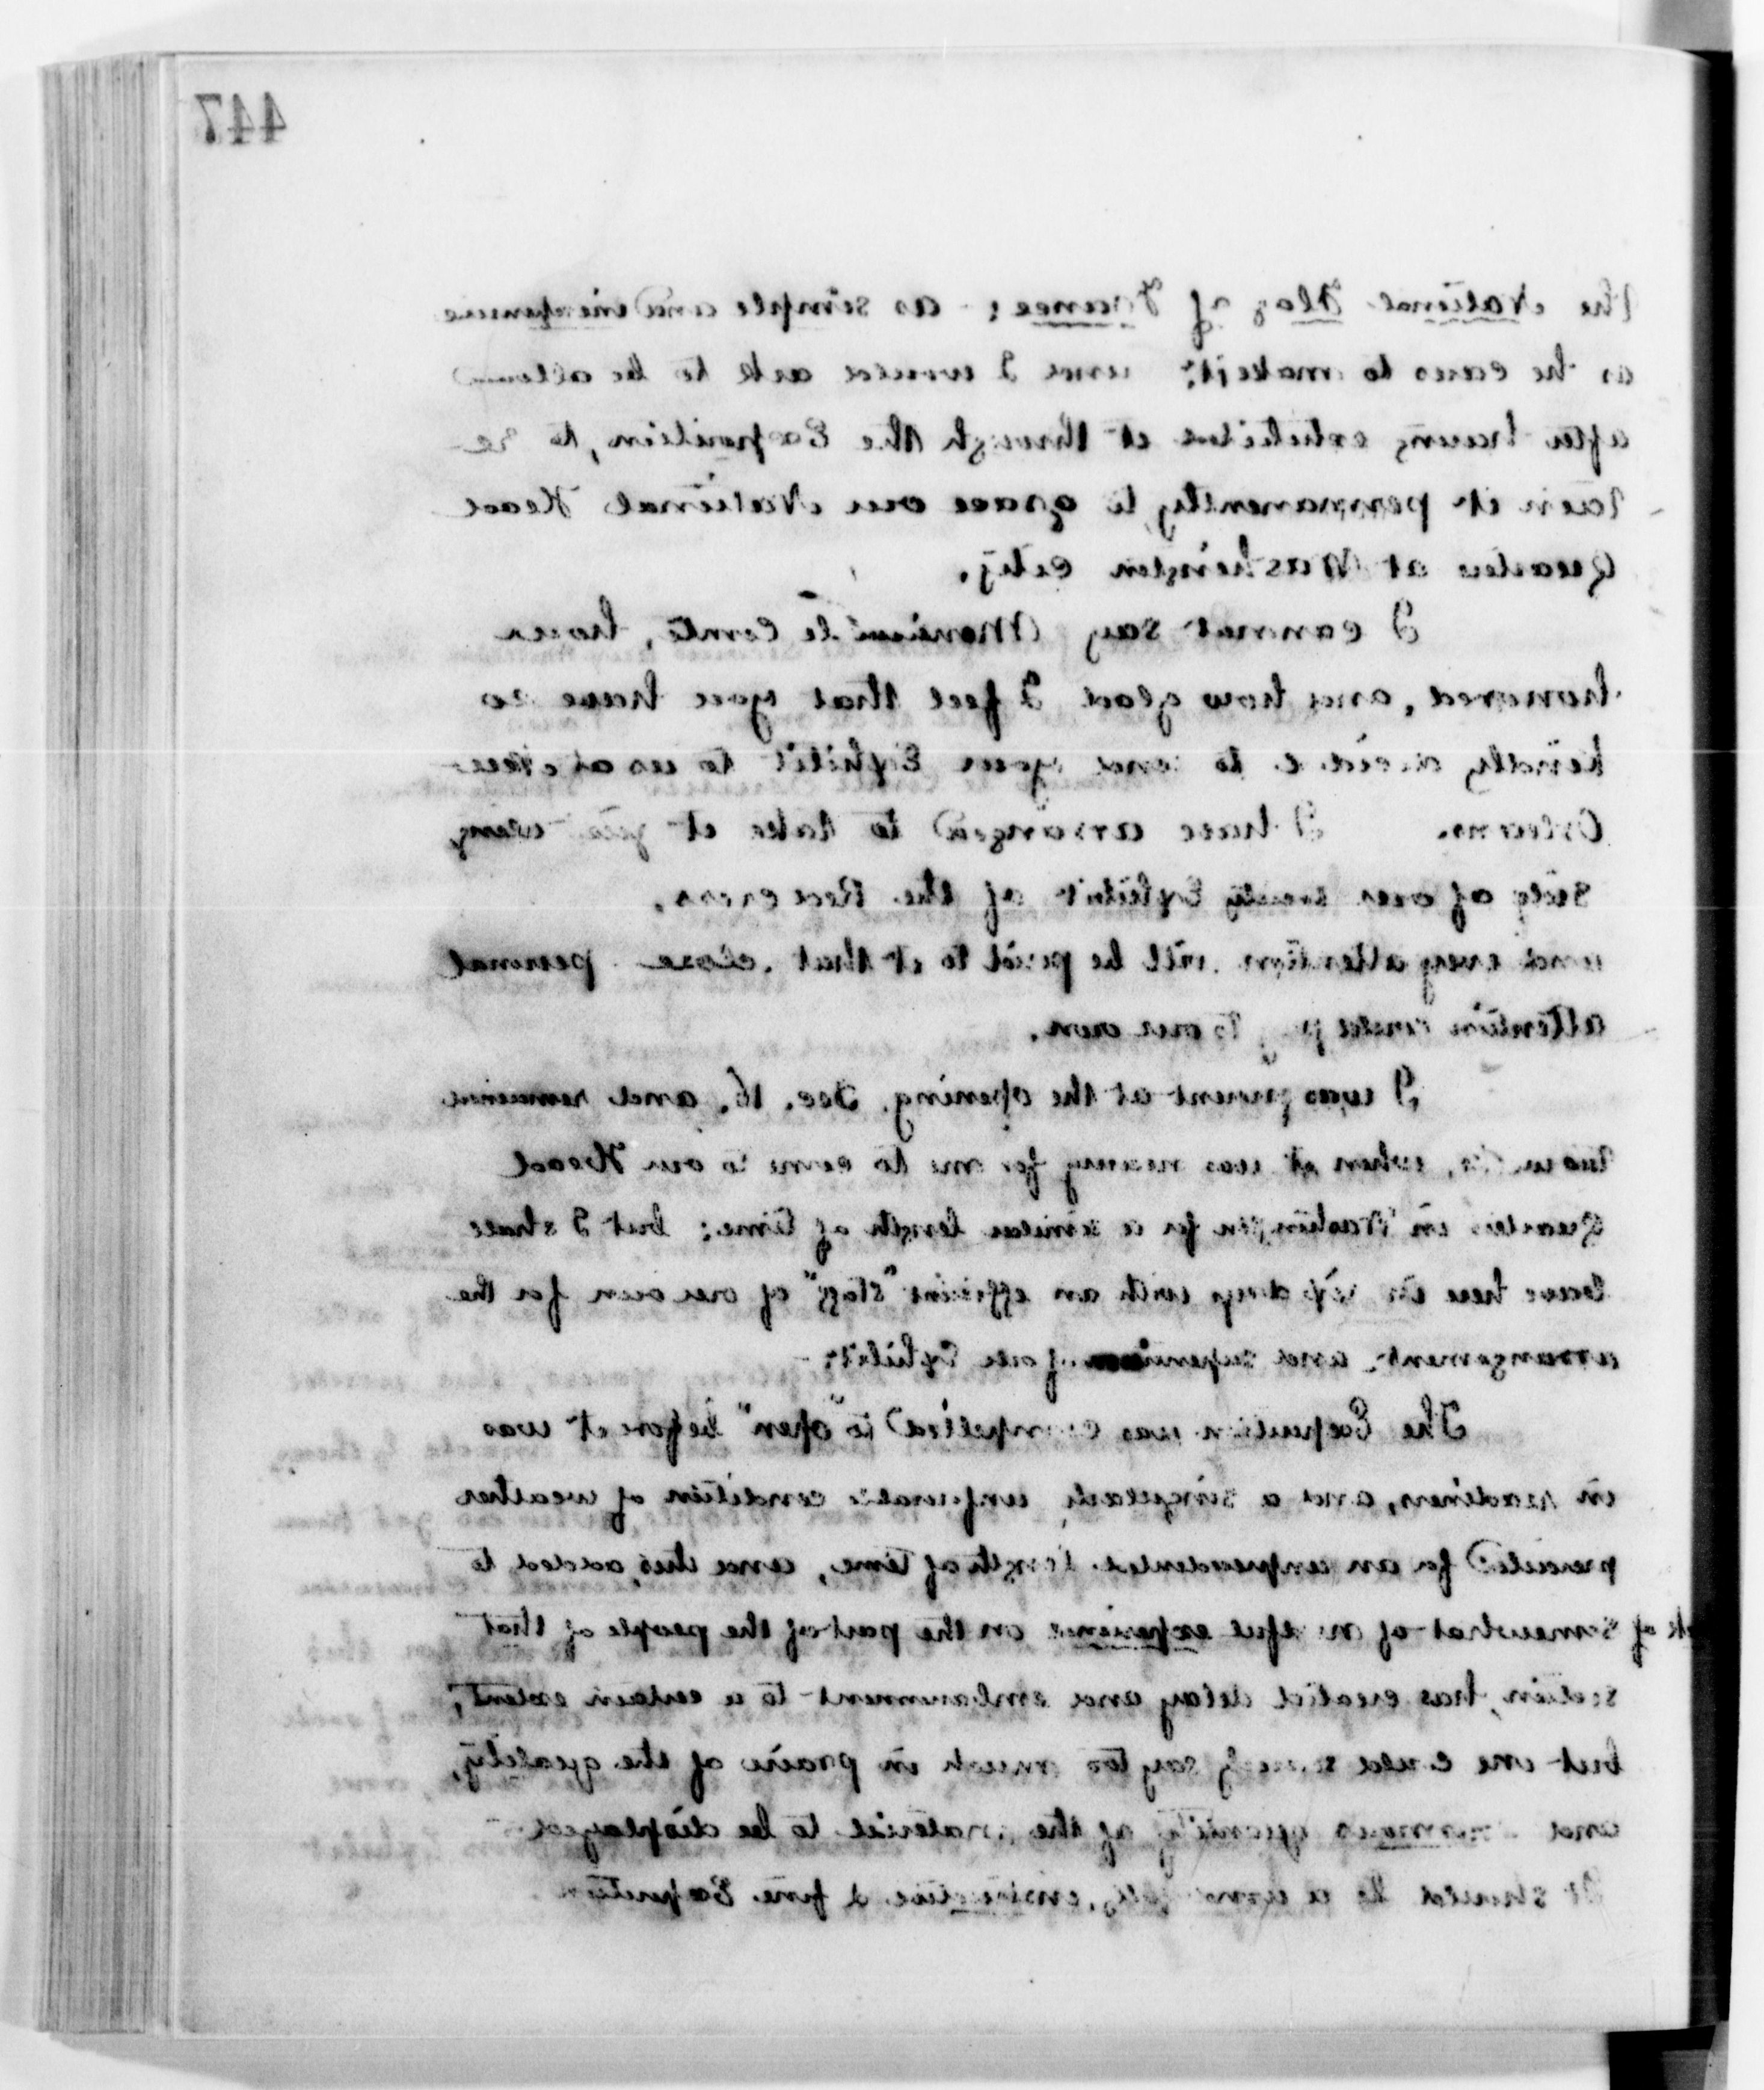 447
the National Flag of France; as simple and inexpensive
as he cares to make it; and I would ask to be allowed
after having exhibited it through the Exposition, to re-
tain it permanently, to grace our National Head
Quarters at Washington city.
I cannot say Monsieur le Comte, how
honored, and how glad I feel that you have so
kindly decided to send your Exhibit to us at New
Orleans. I have arranged to take it
side of our Exhibit of the Red Cross,
and every attention will be paid to it that close personal
attention could to our own.
I was present at the opening, Dec. 16, and remained
two weeks, when it was necessary for me to come to our Head
Quarters in Washington for a similar length of time; but I shall
leave here in days with an efficient "staff" of our own for the
arrangement and supervision of our Exhibit;-
The Exposition was compelled to "open" before it was
in readiness, and a singularly unfavorable condition of weather
prevailed for an unprecedented length of time, and this, added to
somewhat of of needful experience on the part of the people of that
section, has created delay and embarrassment to a certain extent,
but one could scarcely say too much in praise of the quality,
and enormous quantity of the material to be displayed
It should be a instructive & fine Exposition